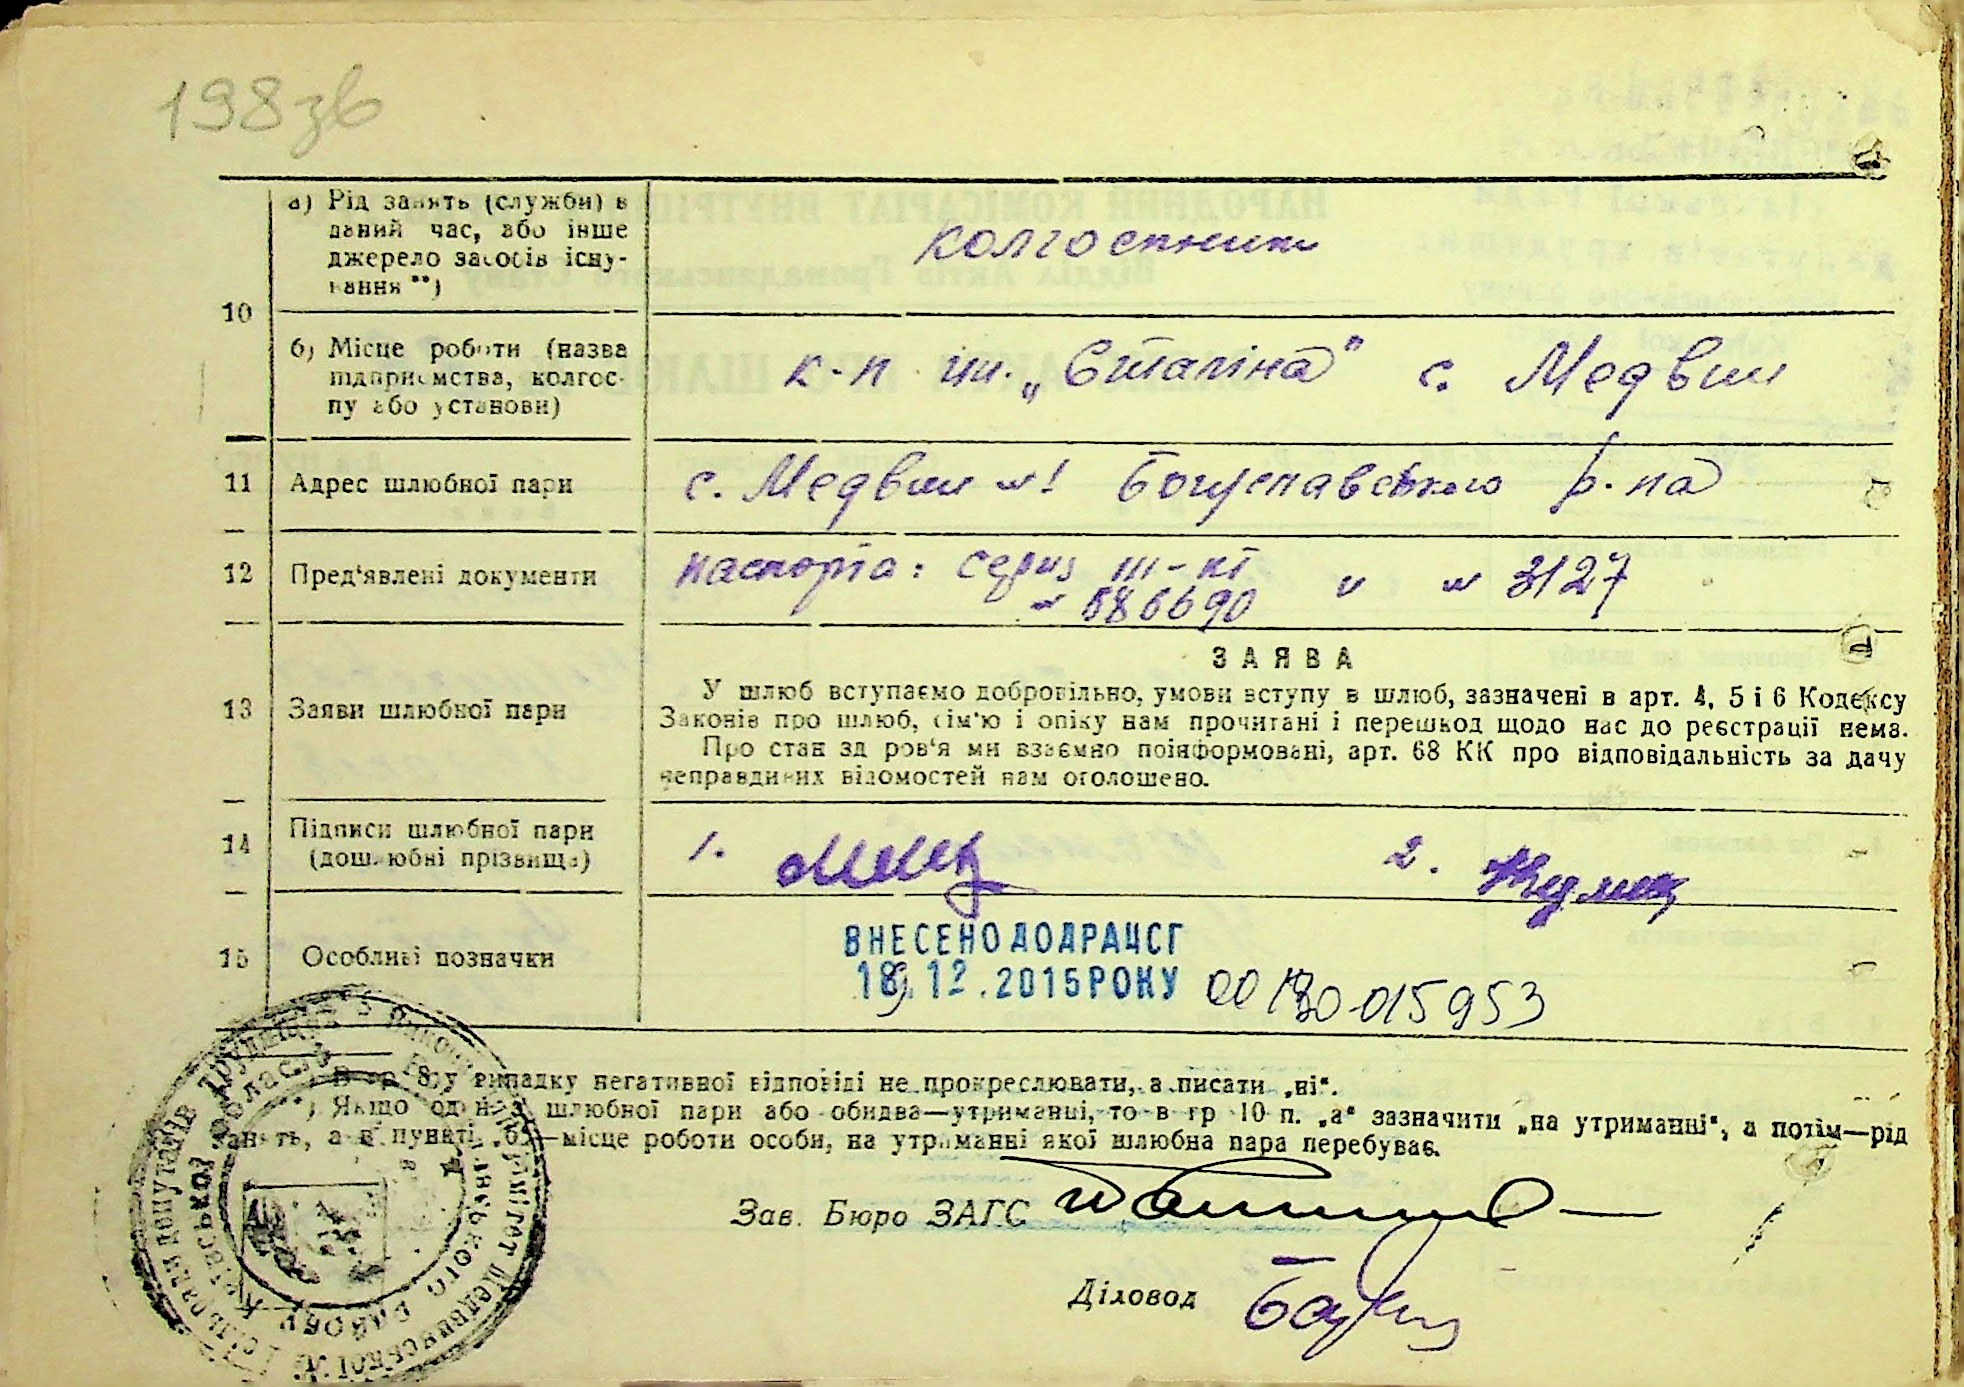 198зв
10
а) Рід занять (служби) в
даний час, або інше
джерело засобів існу-
вання **)
колгоспники
б) Місце роботи (назва
підприємства, колгос-
пу або установи)
к-п ім. „Сталіна" с. Медвин
11
Адрес шлюбної пари
с. Медвин Богуславського р-на
12
Пред'явлені документи
паспорта: серия
586690
3127
ЗАЯВА
13
Заяви шлюбної пари
У шлюб вступаємо добровільно, умови вступу в шлюб, зазначені в арт. 4, 5 і 6 Кодексу
Законів про шлюб, сім'ю і опіку нам прочитані і перешкод щодо нас до реєстрації нема.
Про стан здоров'я ми взаємно поінформовані, арт. 68 КК про відповідальність за дачу
неправдивих відомостей нам оголошено.
14
Підписи шлюбної пари
(дошлюбні прізвища)
1.
2.
15
Особливі позначки
ВНЕСЕНО ДО ДРАЦСГ
19.12.2015 РОКУ
015953
*) В гр 8, у випадку негативної відповіді не прокреслювати, а писати „ні".
**) Якщо один з шлюбної пари або обидва—утриманці, то в гр 10 п. „а" зазначити „на утриманні", а потім—рід
занять, а в пункті „б"—місце роботи особи, на утриманні якої шлюбна пара перебуває.
Зав. Бюро ЗАГС
Діловод